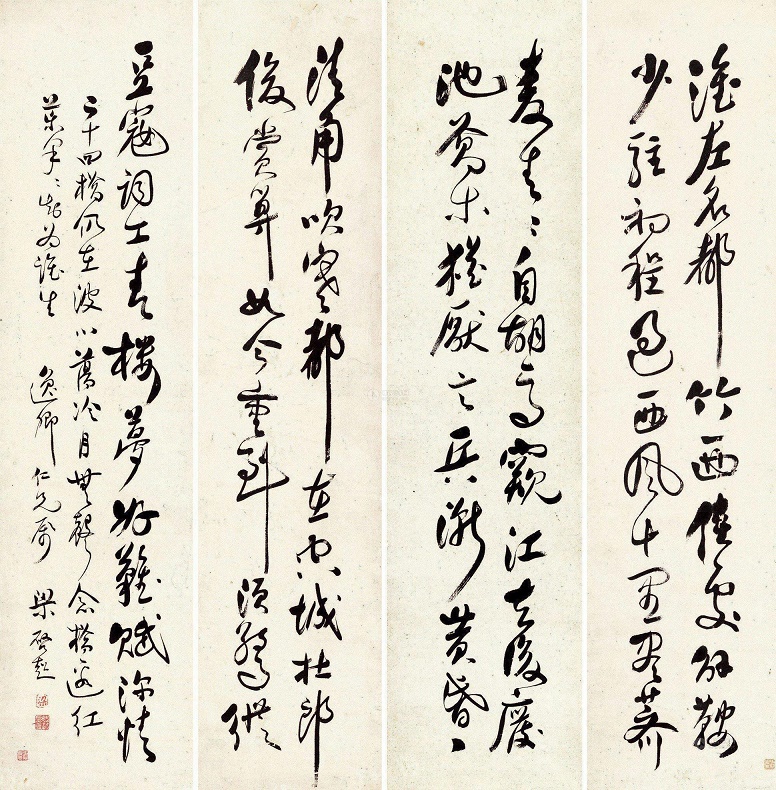 淮左名都竹西佳處解鞍
少駐初程過西風十里盡薺
麥青〻自胡馬窺江去後廢
池喬木猶厭言兵漸黃昏
清角吹寒都在空城杜郎
俊賞算如今重到須驚縱
豆蔻詞工青樓夢好難賦深情
二十四橋仍在波心蕩冷月無聲念橋邊紅
藥年〻知為誰生 逸卿仁兄屬 梁啟超